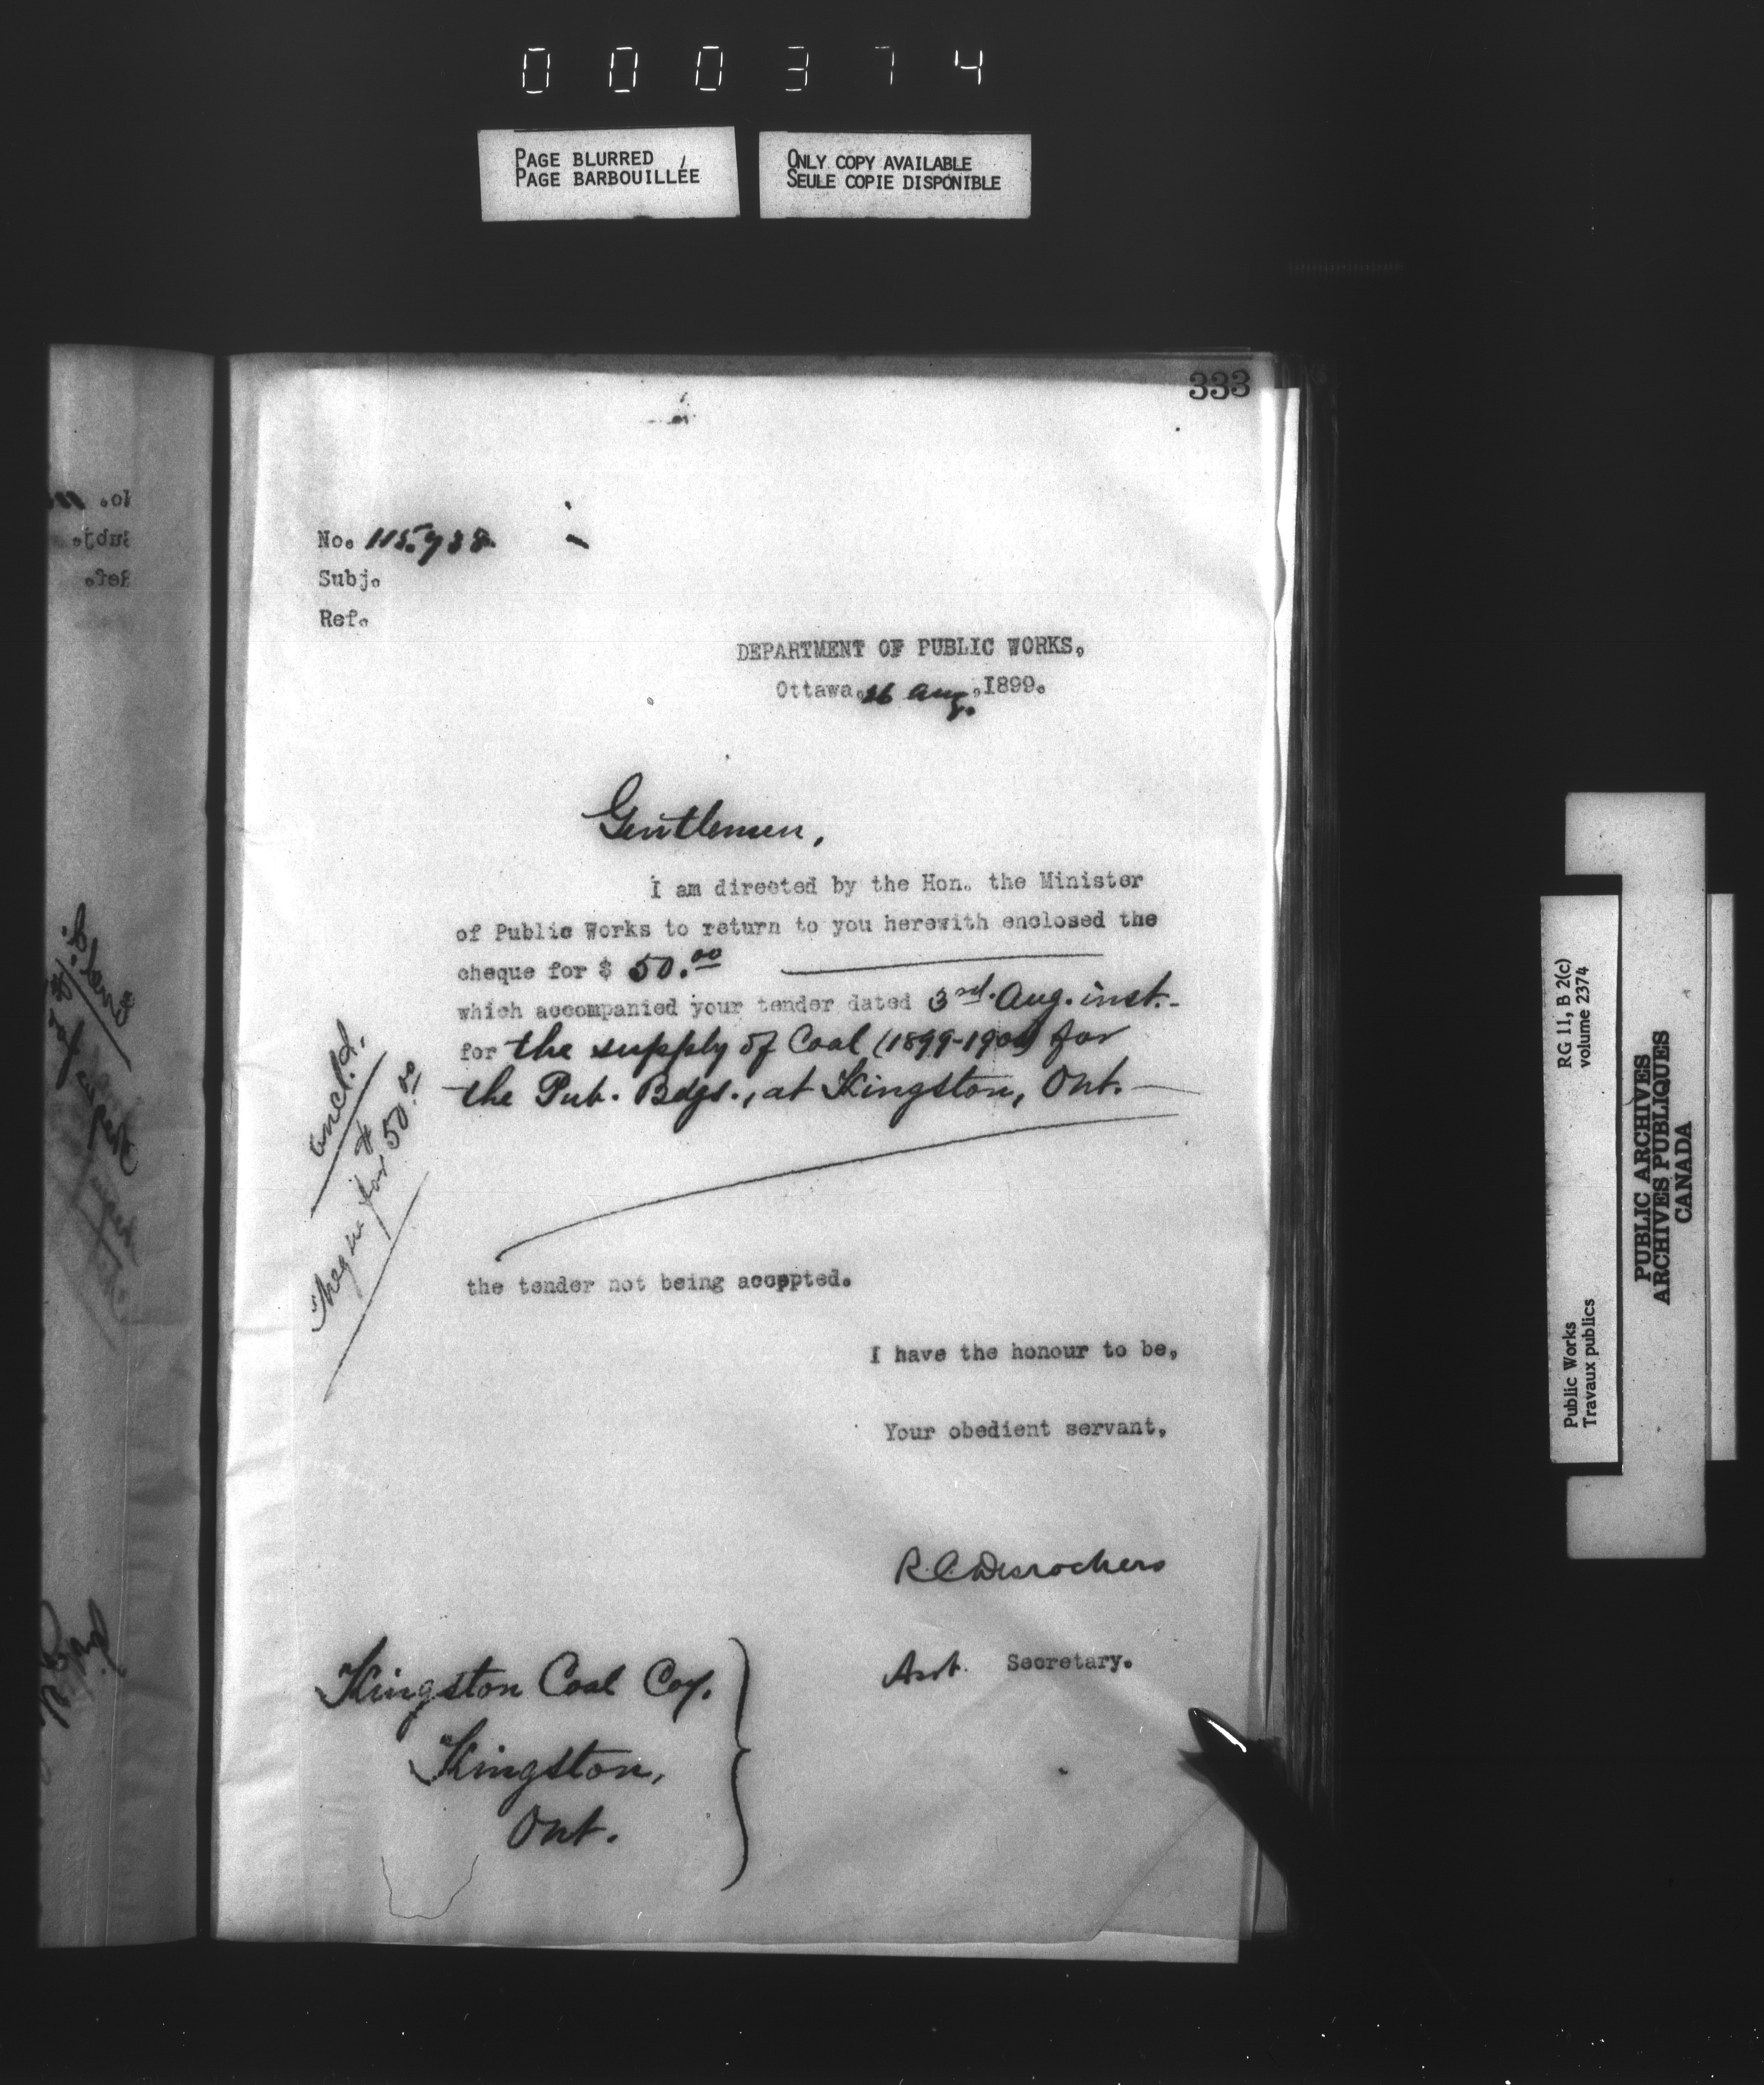 000374
PAGE BLURRED
PAGE BARBOUILLÉE
ONLY COPY AVAILABLE
SEULE COPIE DISPONIBLE
333
No. 115.938
Subj.
Ref.
DEPARTMENT OF PUBLIC WORKS,
Ottawa, 26 Aug., 1899.
Gentlemen,
I am directed by the Hon. the Minister
of Public Works to return to you herewith enclosed the
cheque for $ 50.00
which accompanied your tender dated 3rd. Aug. inst.-
for the supply of Coal (1899-1900) for
the Pub. Bdgs., at Kingston, Ont.
encld.
Cheque for $50.00
the tender not being accepted.
I have the honour to be,
Your obedient servant,
R.C. Desrochers
Asst. Secretary.
Kingston Coal Coy.
Kingston,
Ont.
RG 11, B 2(c)
volume 2374
Public Works
Travaux publics
PUBLIC ARCHIVES
ARCHIVES PUBLIQUES
CANADA